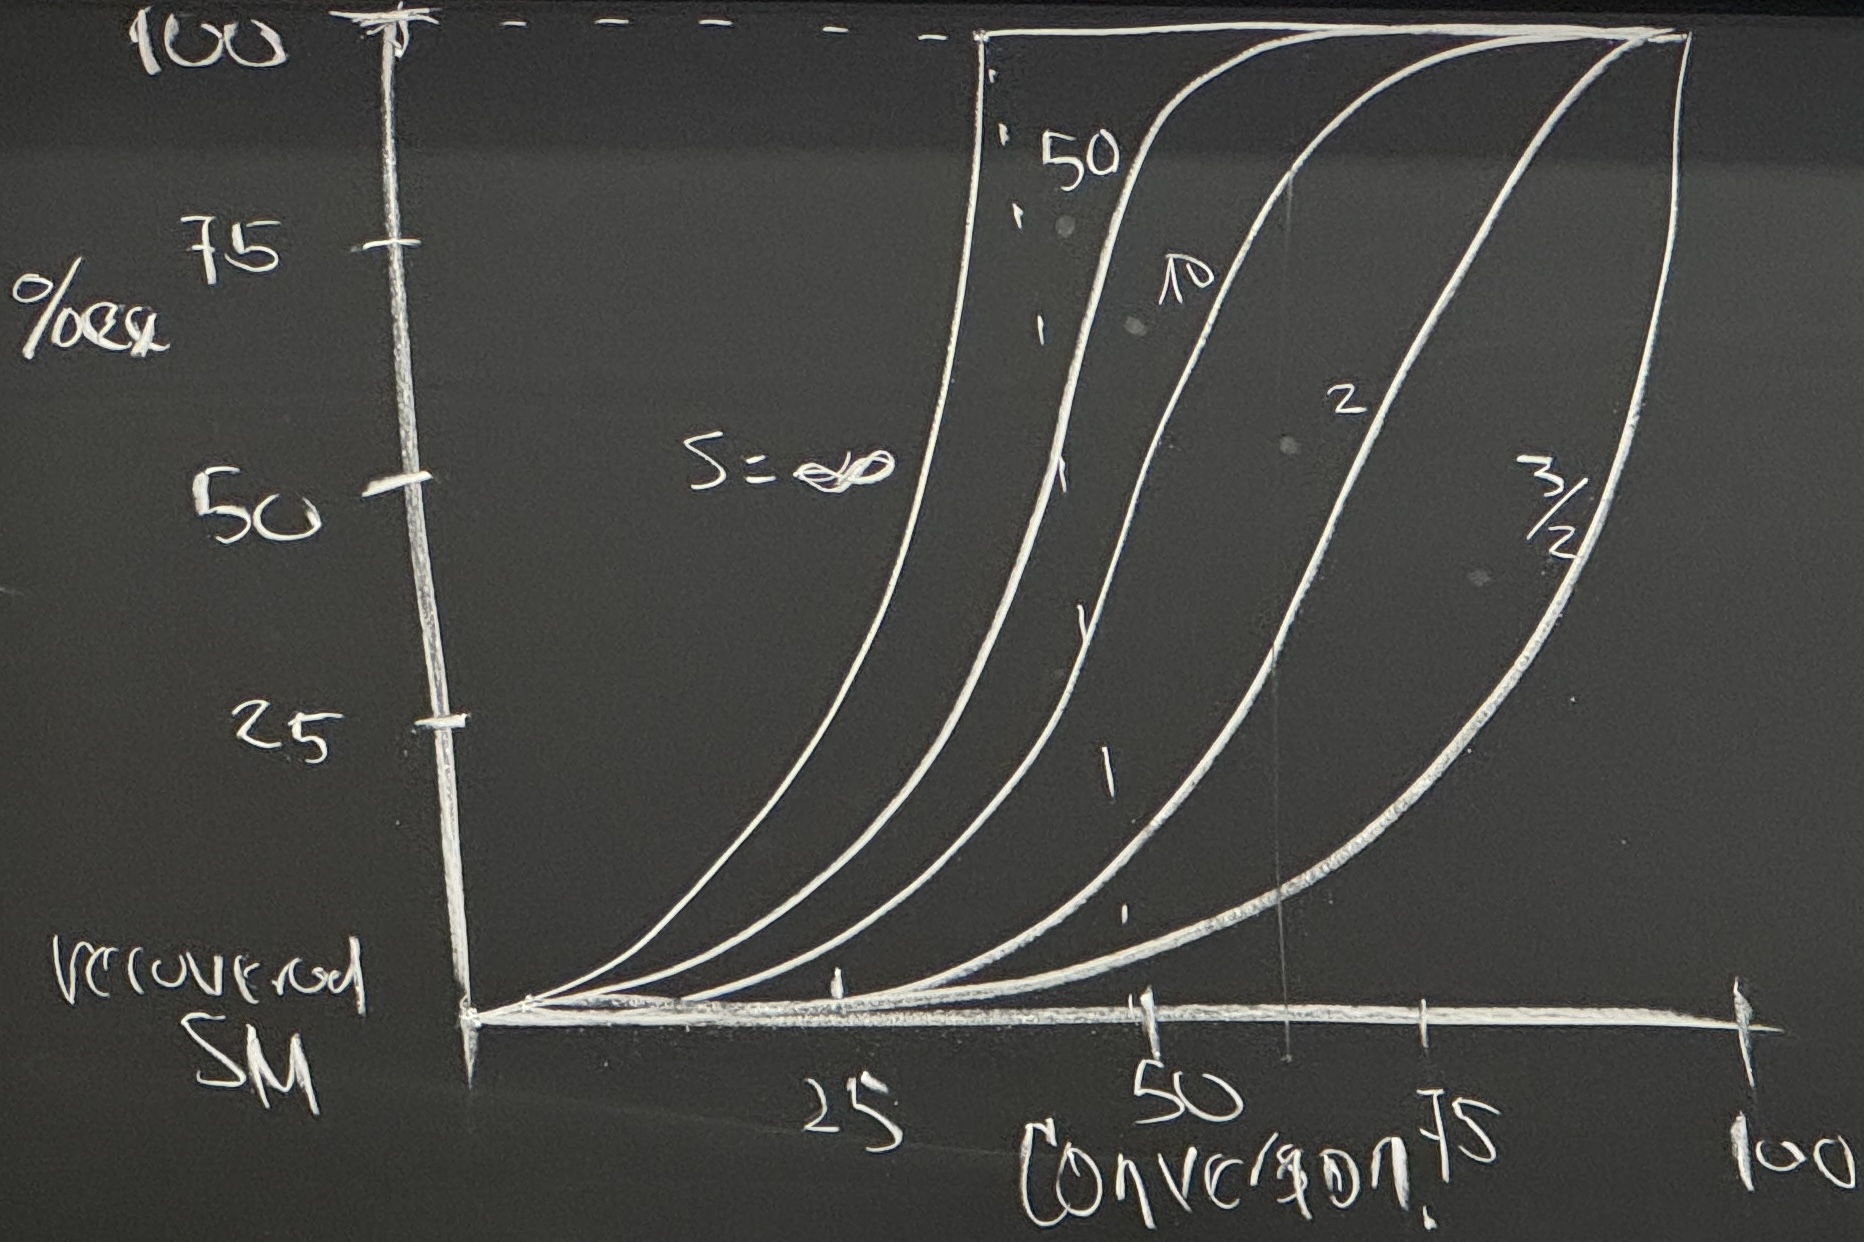 100
75
%ee
50
25
recovered
SM
S=∞
50
10
2
3/2
25
50
75
100
Conversion